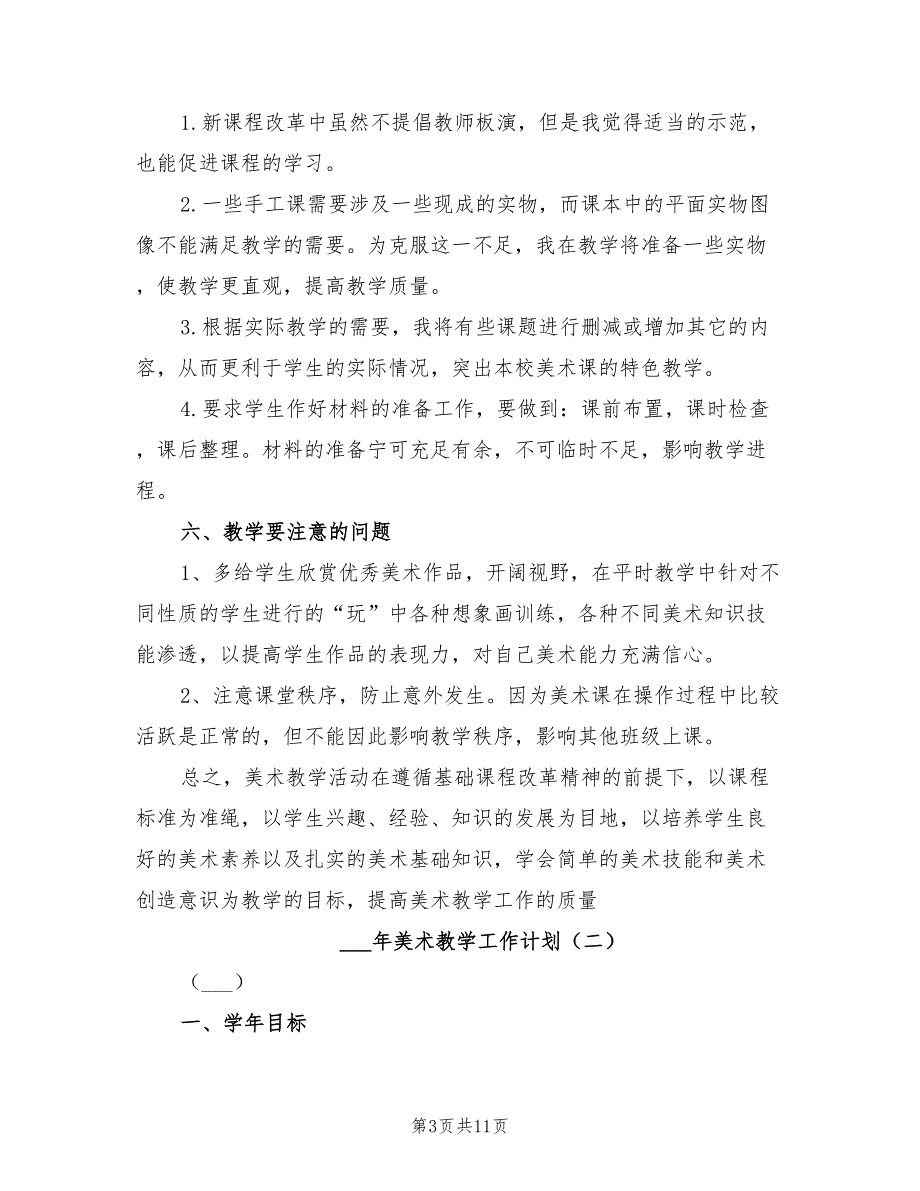 1.新课程改革中虽然不提倡教师板演，但是我觉得适当的示范，
也能促进课程的学习。
2.一些手工课需要涉及一些现成的实物，而课本中的平面实物图
像不能满足教学的需要。为克服这一不足，我在教学将准备一些实物
，使教学更直观，提高教学质量。
3.根据实际教学的需要，我将有些课题进行删减或增加其它的内
容，从而更利于学生的实际情况，突出本校美术课的特色教学。
4.要求学生作好材料的准备工作，要做到：课前布置，课时检查
，课后整理。材料的准备宁可充足有余，不可临时不足，影响教学进
程。
六、教学要注意的问题
1、多给学生欣赏优秀美术作品，开阔视野，在平时教学中针对不
同性质的学生进行的“玩”中各种想象画训练，各种不同美术知识技
能渗透，以提高学生作品的表现力，对自己美术能力充满信心。
2、注意课堂秩序，防止意外发生。因为美术课在操作过程中比较
活跃是正常的，但不能因此影响教学秩序，影响其他班级上课。
总之，美术教学活动在遵循基础课程改革精神的前提下，以课程
标准为准绳，以学生兴趣、经验、知识的发展为目地，以培养学生良
好的美术素养以及扎实的美术基础知识，学会简单的美术技能和美术
创造意识为教学的目标，提高美术教学工作的质量
___年美术教学工作计划（二）
（___）
一、学年目标
第3页共11页